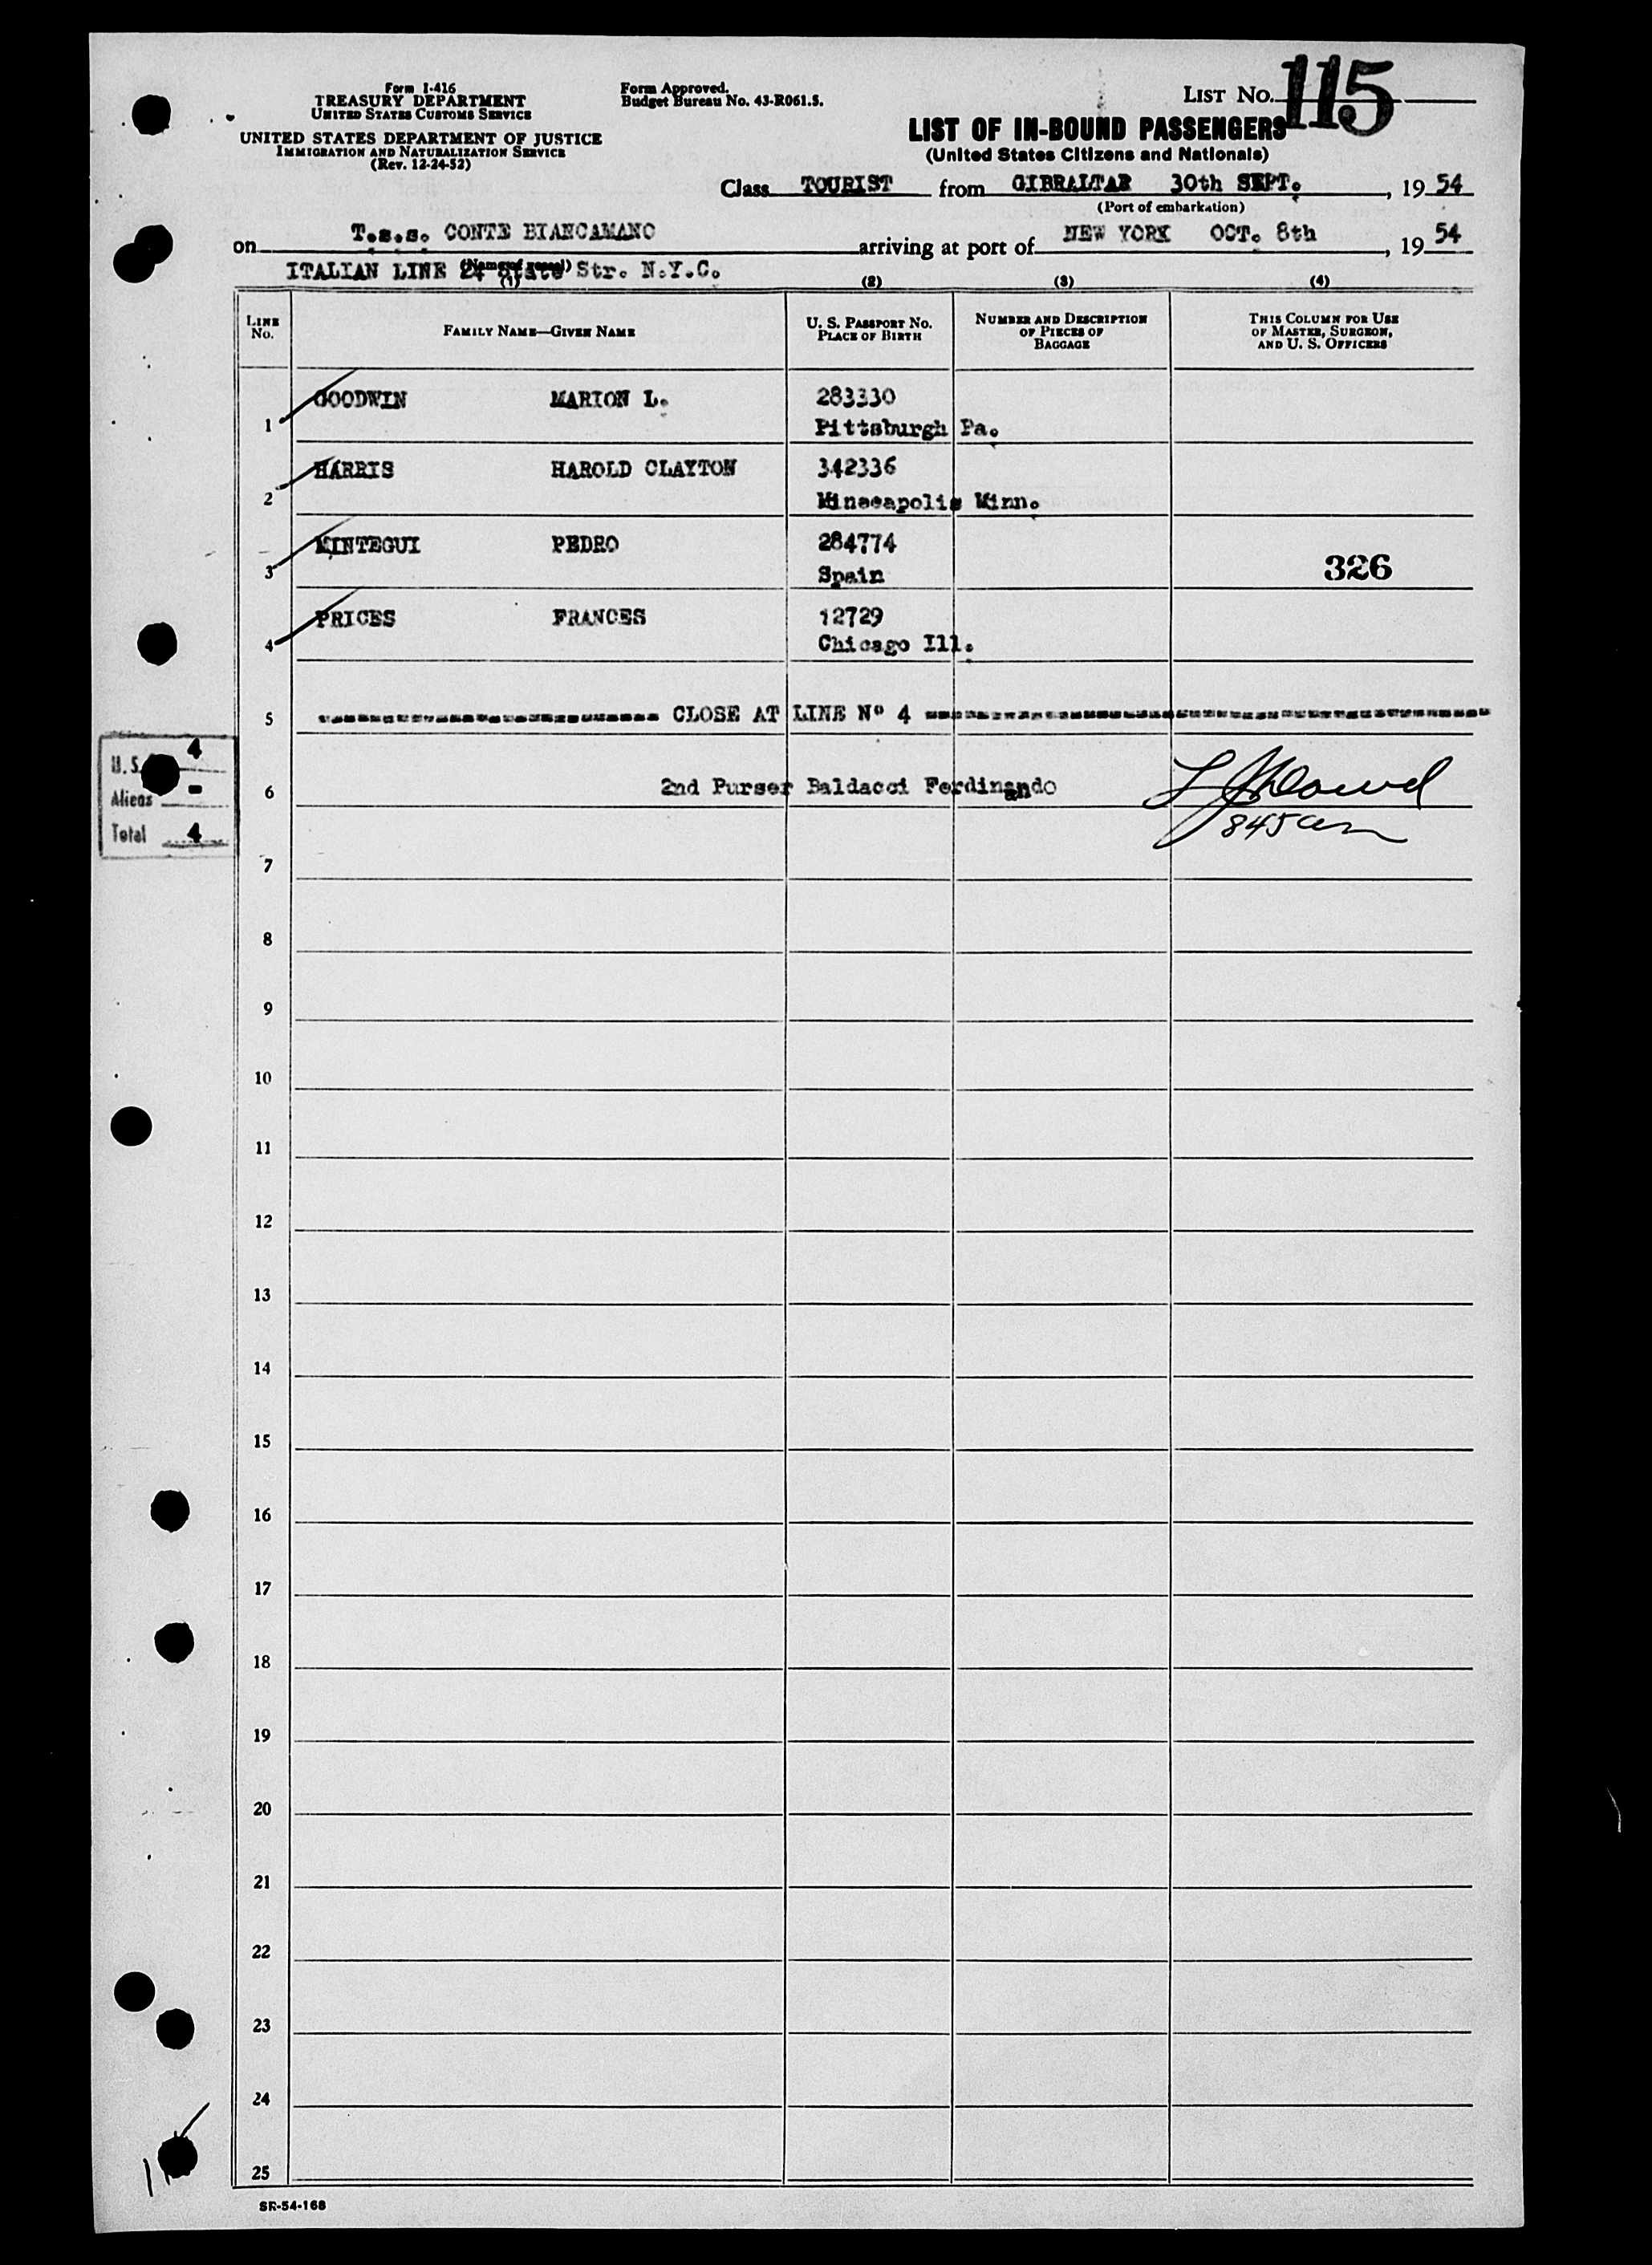 Form I-416
TREASURY DEPARTMENT
UNITED STATES CUSTOMS SERVICE
UNITED STATES DEPARTMENT OF JUSTICE
IMMIGRATION AND NATURALIZATION SERVICE
(Rev. 12-24-52)
Form Approved.
Budget Bureau No. 43-R061.5.
LIST NO. 115
LIST OF IN-BOUND PASSENGERS
(United States Citizens and Nationals)
Class TOURIST from GIBRALTAR 30th SEPT. , 19 54
(Port of embarkation)
on T.s.s. CONTE BIANCAMANO arriving at port of NEW YORK OCT. 8th , 19 54
(Name of vessel)
ITALIAN LINE 24 State Str. N.Y.C.
(1) (2) (3) (4)
LINE No. FAMILY NAME—GIVEN NAME U. S. PASSPORT NO. PLACE OF BIRTH NUMBER AND DESCRIPTION OF PIECES OF BAGGAGE THIS COLUMN FOR USE OF MASTER, SURGEON, AND U. S. OFFICERS
1 GOODWIN MARION L. 283330
Pittsburgh Pa.
2 HARRIS HAROLD CLAYTON 342336
Mineeapolis Minn.
3 MINTEGUI PEDRO 284774
Spain 326
4 PRICES FRANCES 12729
Chicago Ill.
5 CLOSE AT LINE Nº 4
U.S. 4
Aliens -
Total 4
6 2nd Purser Baldacci Ferdinando
845am
7
8
9
10
11
12
13
14
15
16
17
18
19
20
21
22
23
24
25
SR-54-168